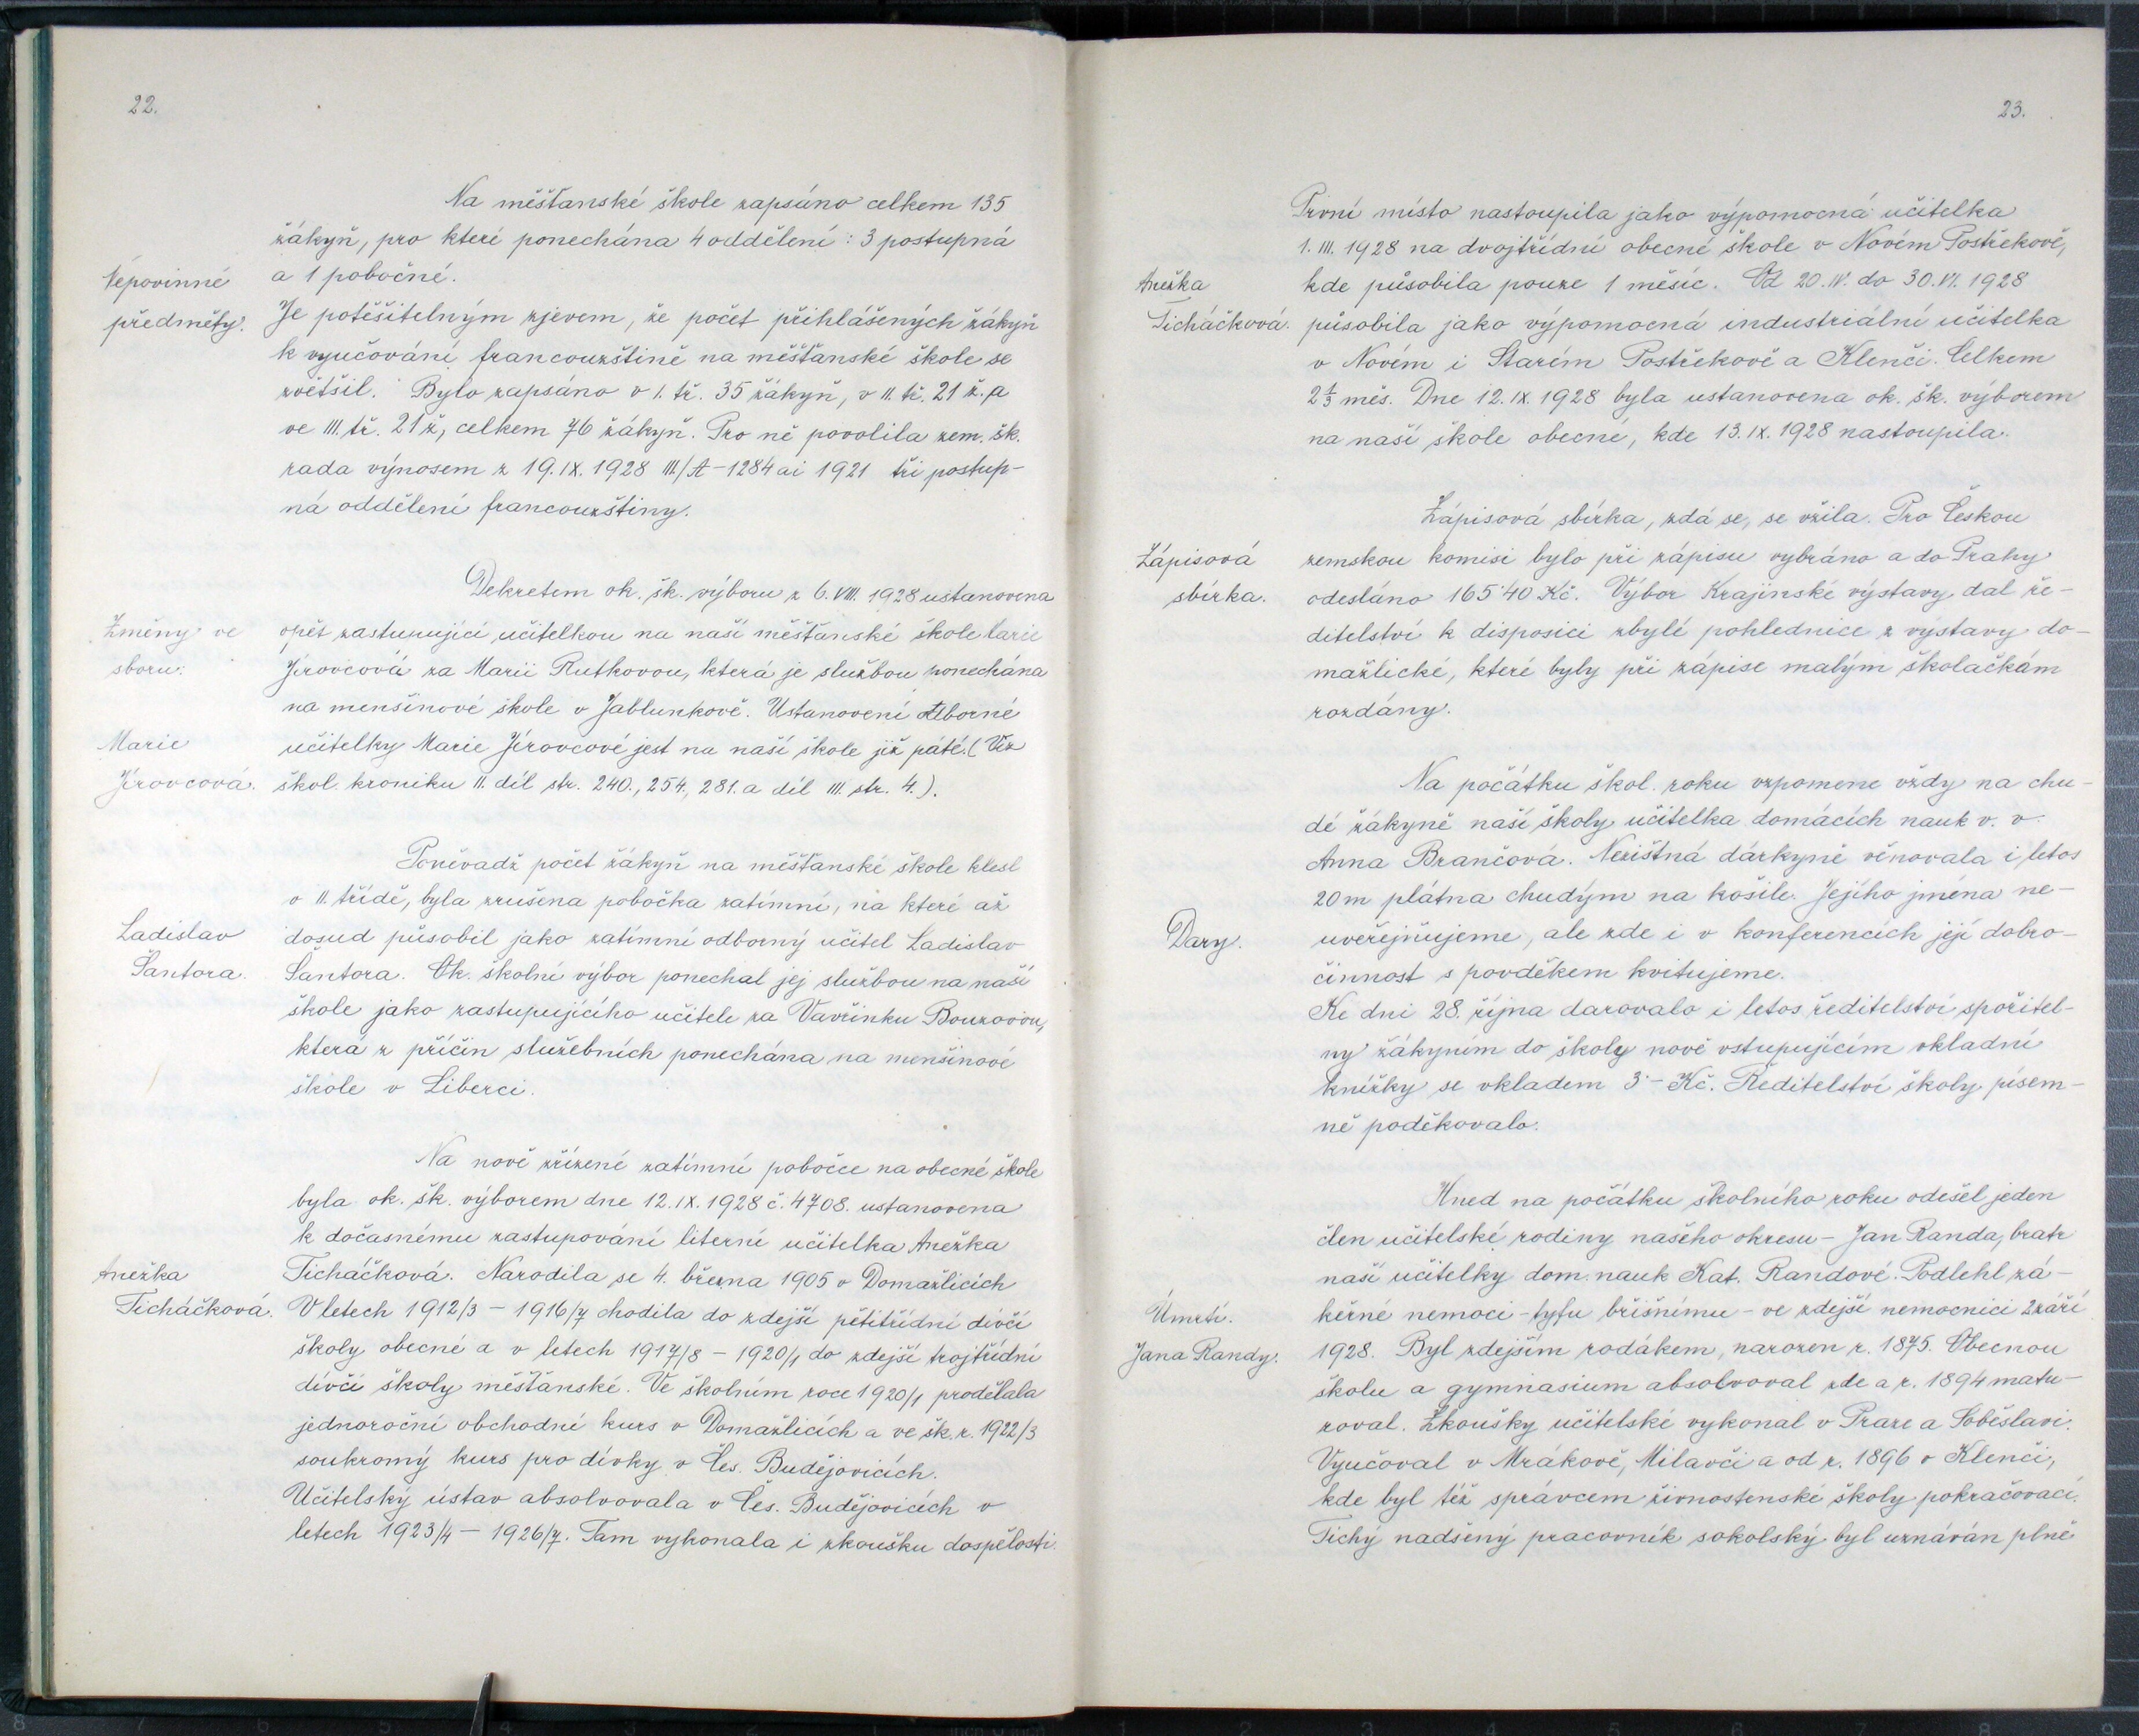 22.
Na měšťanské škole zapsáno celkem 135
žákyň, pro které ponechána 4 oddělení: 3 postupná
a 1 pobočné.
Nepovinné
předměty.
Je potěšitelným zjevem, že počet přihlášených žákyň
k vyučování francouzštině na měšťanské škole se
zvětšil. Bylo zapsáno v I. tř. 35 žákyň, v II. tř. 21 ž. a
ve III. tř. 21 ž, celkem 76 žákyň. Pro ně povolila zem. šk.
rada výnosem z 19. IX. 1928 III/A-1284 ai 1921 tři postup-
ná oddělení francouzštiny.
Dekretem ok. šk. výboru z 6. VIII. 1928 ustanovena
Změny ve
sboru:
opět zastupující učitelkou na naší měšťanské škole Marie
Jírovcová za Marii Rutkovou, která je službou ponechána
na menšinové škole v Jablunkově. Ustanovení odborné
Marie
Jírovcová.
učitelky Marie Jírovcové jest na naší škole již páté. (Viz
škol. kroniku II. díl str. 240., 254., 281. a díl III. str. 4.).
Poněvadž počet žákyň na měšťanské škole klesl
v II. třídě, byla zrušena pobočka zatímní, na které až
Ladislav
Šantora.
dosud působil jako zatímní odborný učitel Ladislav
Šantora. Ok. školní výbor ponechal jej službou na naší
škole jako zastupujícího učitele za Vavřinku Bouzovou,
která z příčin služebních ponechána na menšinové
škole v Liberci.
Na nově zřízené zatímní pobočce na obecné škole
byla ok. šk. výborem dne 12. IX. 1928 č. 4708. ustanovena
k dočasnému zastupování literní učitelka Anežka
Anežka
Ticháčková.
Ticháčková. Narodila se 4. března 1905 v Domažlicích
V letech 1912/3 – 1916/7 chodila do zdejší pětitřídní dívčí
školy obecné a v letech 1917/8 – 1920/1 do zdejší trojtřídní
dívčí školy měšťanské. Ve školním roce 1920/1 prodělala
jednoroční obchodní kurs v Domažlicích a ve šk. r. 1922/3
soukromý kurs pro dívky v Čes. Budějovicích.
Učitelský ústav absolvovala v Čes. Budějovicích v
letech 1923/4 – 1926/7. Tam vykonala i zkoušku dospělosti.
23.
První místo nastoupila jako výpomocná učitelka
1. III. 1928 na dvojtřídní obecné škole v Novém Postřekově,
Anežka
Ticháčková.
kde působila pouze 1 měsíc. Od 20. IV. do 30. VI. 1928
působila jako výpomocná industriální učitelka
v Novém i Starém Postřekově a Klenčí. Celkem
2 1/3 měs. Dne 12. IX. 1928 byla ustanovena ok. šk. výborem
na naší škole obecné, kde 13. IX. 1928 nastoupila.
Zápisová sbírka, zdá se, se vžila. Pro Českou
Zápisová
sbírka.
zemskou komisi bylo při zápisu vybráno a do Prahy
odesláno 165˙40 Kč. Výbor Krajinské výstavy dal ře-
ditelství k disposici zbylé pohlednice z výstavy do-
mažlické, které byly při zápise malým školačkám
rozdány.
Na počátku škol. roku vzpomene vždy na chu-
dé žákyně naší školy učitelka domácích nauk v. v.
Anna Brančová. Nezištná dárkyně věnovala i letos
20 m plátna chudým na košile. Jejího jména ne-
Dary.
uveřejňujeme, ale zde i v konferencích její dobro-
činnost s povděkem kvitujeme.
Ke dni 28. října darovalo i letos ředitelství spořitel-
ny žákyním do školy nově vstupujícím vkladní
knížky se vkladem 3˙– Kč. Ředitelství školy písem-
ně poděkovalo.
Hned na počátku školního roku odešel jeden
člen učitelské rodiny našeho okresu – Jan Randa, bratr
naší učitelky dom. nauk Kat. Randové. Podlehl zá-
Úmrtí.
Jana Randy.
keřné nemoci – tyfu břišnímu – ve zdejší nemocnici 2 září
1928. Byl zdejším rodákem, narozen r. 1875. Obecnou
školu a gymnasium absolvoval zde a r. 1894 matu-
roval. Zkoušky učitelské vykonal v Praze a Soběslavi.
Vyučoval v Mrákově, Milavči a od r. 1896 v Klenčí,
kde byl též správcem živnostenské školy pokračovací.
Tichý nadšený pracovník sokolský byl uznáván plně